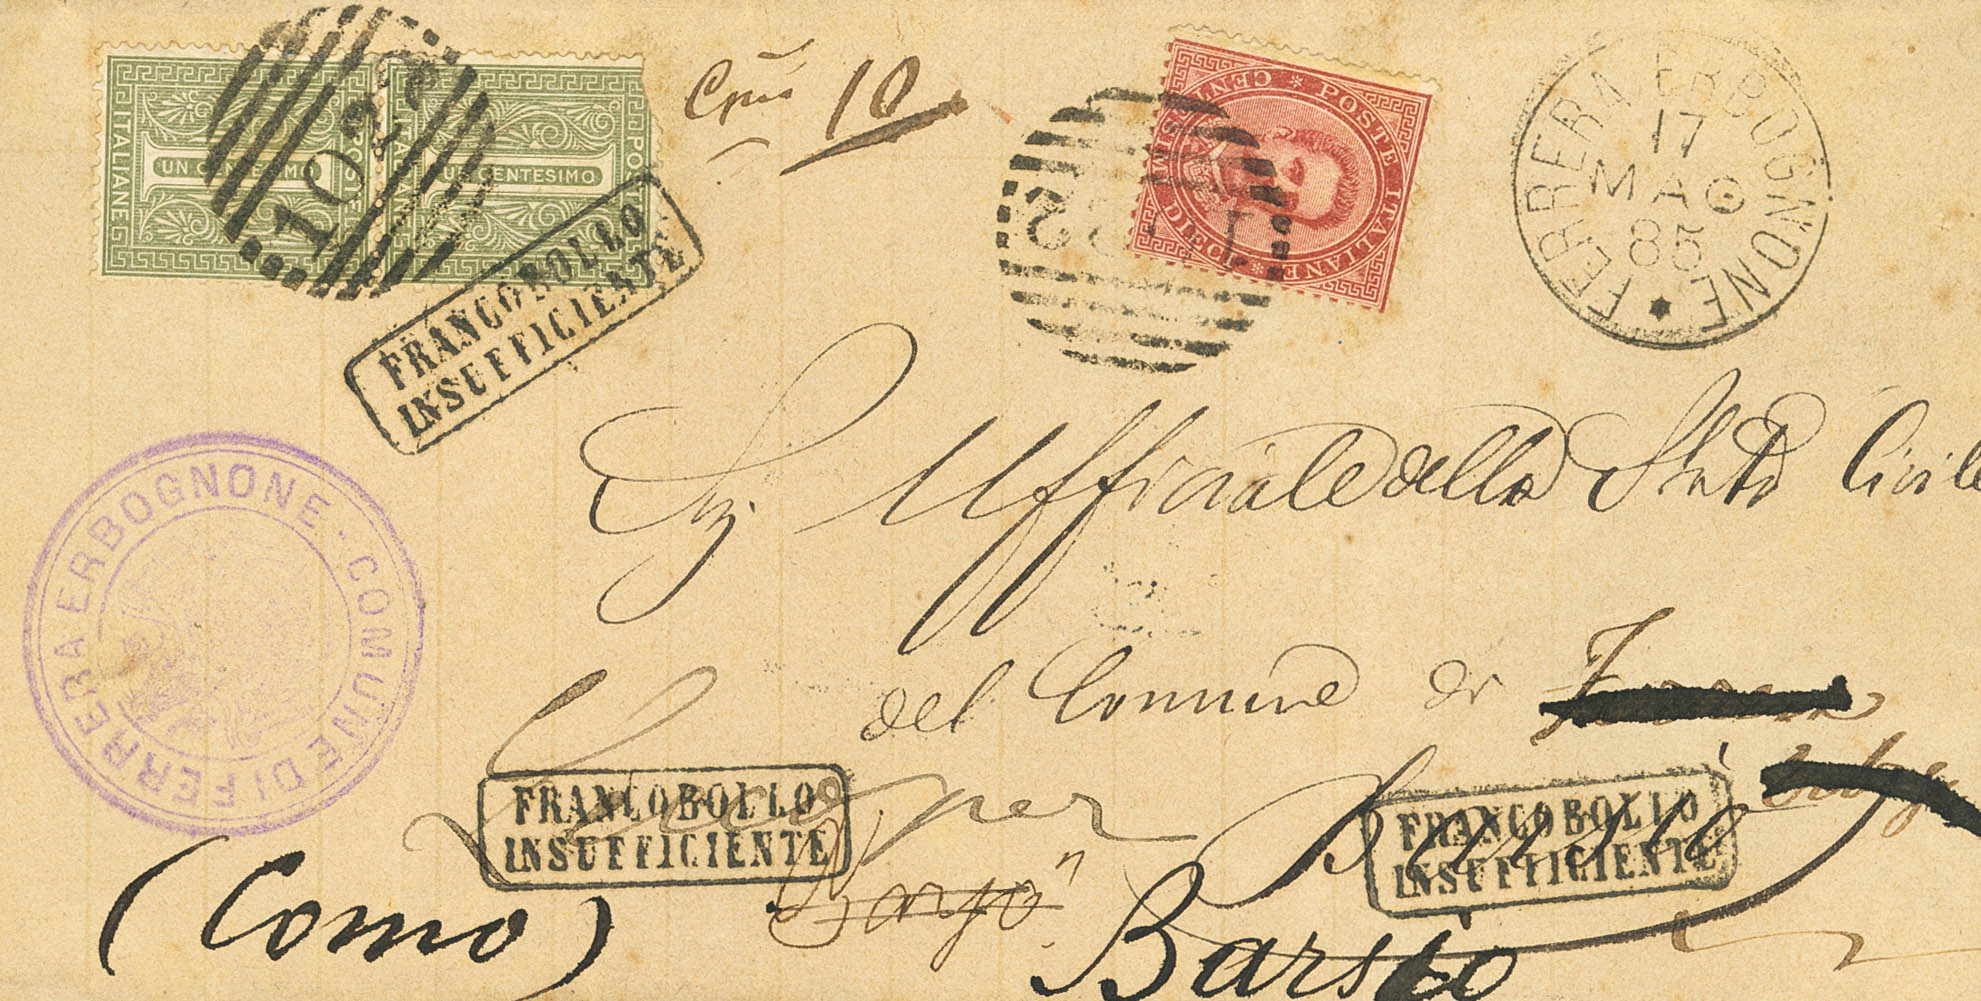 POSTE ITALIANE
UN CENTESIMO
POSTE ITALIANE
UN CENTESIMO
FRANCOBOLLO
INSUFFICIENTE
10
POSTE ITALIANE * CENTESIMI DIECI *
FERRERA ERBOGNONE
17
MAG
85
Uffiziale dello Stato Civile
del Comune di
COMUNE DI FERRERA ERBOGNONE
per
FRANCOBOLLO
INSUFFICIENTE
FRANCOBOLLO
INSUFFICIENTE
(Como)
Barsio